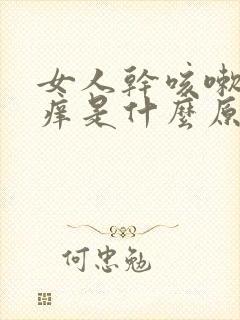 女人幹咳嗽
痒是什麼原
何忠勉